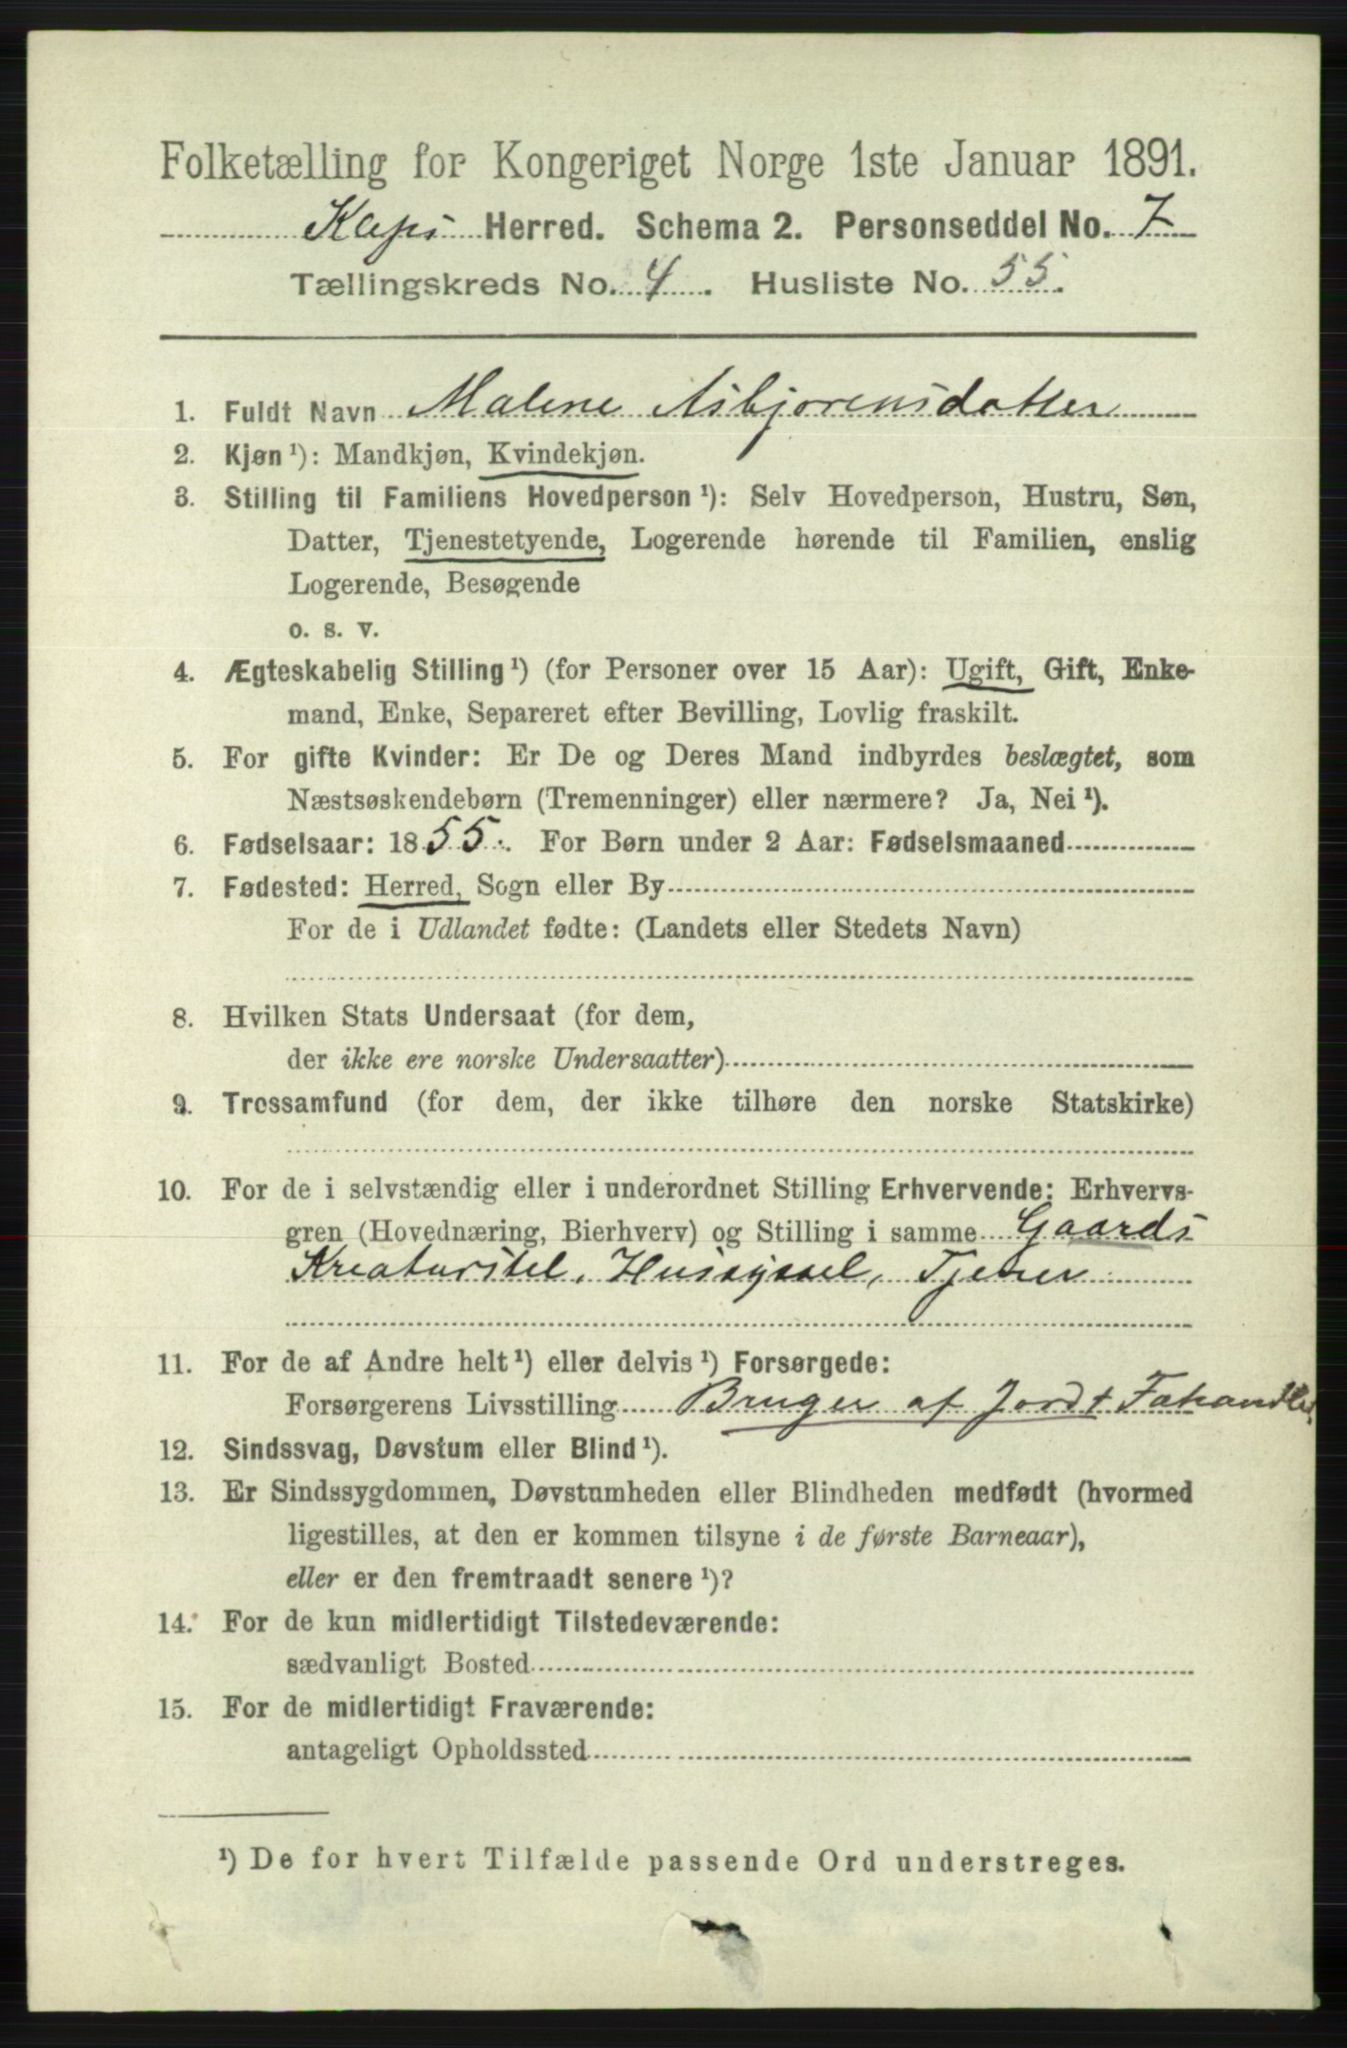 Folketælling for Kongeriget Norge 1ste Januar 1891.
Herred. Schema 2. Personseddel No. 7
Tællingskreds No. 4. Husliste No. 55.
1. Fuldt Navn Malene Asbjørensdatter
2. Kjøn ¹): Mandkjøn, Kvindekjøn.
3. Stilling til Familiens Hovedperson ¹): Selv Hovedperson, Hustru, Søn,
Datter, Tjenestetyende, Logerende hørende til Familien, enslig
Logerende, Besøgende
o. s. v.
4. Ægteskabelig Stilling ¹) (for Personer over 15 Aar): Ugift, Gift, Enke-
mand, Enke, Separeret efter Bevilling, Lovlig fraskilt.
5. For gifte Kvinder: Er De og Deres Mand indbyrdes beslægtet, som
Næstsøskendebørn (Tremenninger) eller nærmere? Ja, Nei ¹).
6. Fødselsaar: 1855. For Børn under 2 Aar: Fødselsmaaned
7. Fødested: Herred, Sogn eller By
For de i Udlandet fødte: (Landets eller Stedets Navn)
8. Hvilken Stats Undersaat (for dem,
der ikke ere norske Undersaatter)
9. Trossamfund (for dem, der ikke tilhøre den norske Statskirke)
10. For de i selvstændig eller i underordnet Stilling Erhvervende: Erhvervs-
gren (Hovednæring, Bierhverv) og Stilling i samme Gaards
Kreaturstel, Hussyssel, Tjener
11. For de af Andre helt ¹) eller delvis ¹) Forsørgede:
Forsørgerens Livsstilling Bruger af Jord +
12. Sindssvag, Døvstum eller Blind ¹).
13. Er Sindssygdommen, Døvstumheden eller Blindheden medfødt (hvormed
ligestilles, at den er kommen tilsyne i de første Barneaar),
eller er den fremtraadt senere ¹)?
14. For de kun midlertidigt Tilstedeværende:
sædvanligt Bosted
15. For de midlertidigt Fraværende:
antageligt Opholdssted
¹) De for hvert Tilfælde passende Ord understreges.